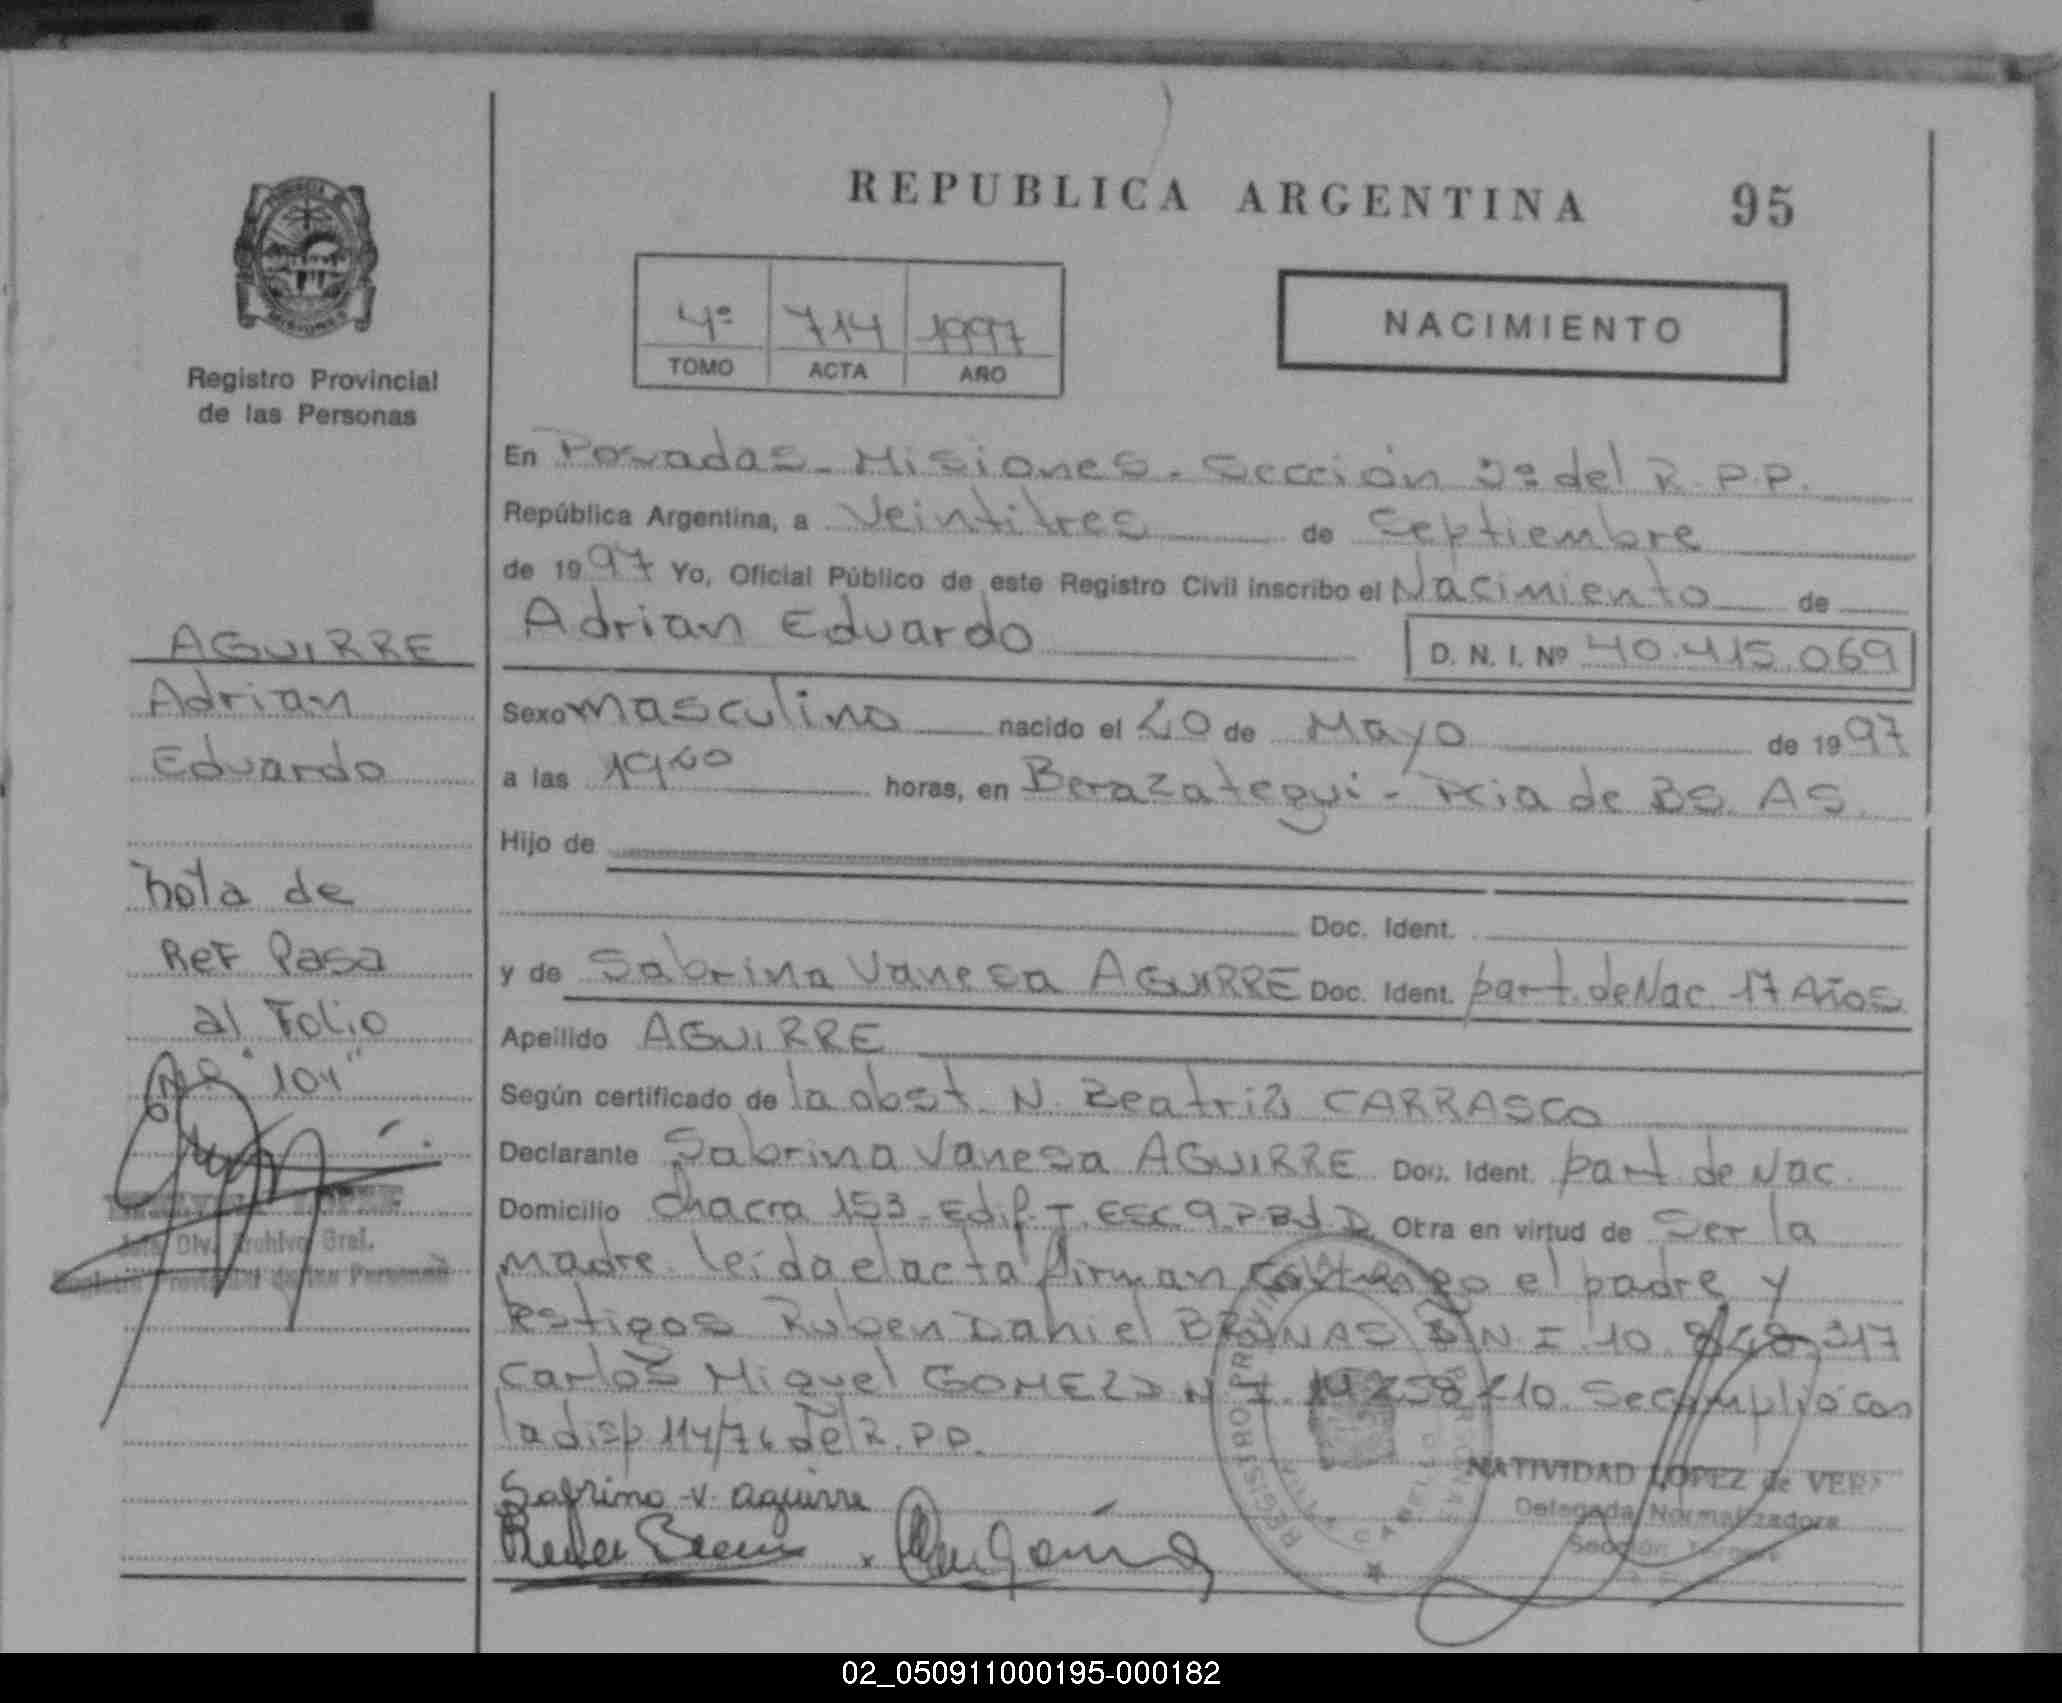 REPUBLICA ARGENTINA 95
4º 714 1997
TOMO ACTA AÑO
NACIMIENTO
MISIONES
Registro Provincial
de las Personas
AGUIRRE
Adrian
Eduardo
nota de
Ref Pasa
al Folio
Nº "104"
Jefe Div. Archivo Gral.
Registro Provincial de las Personas
En Posadas - Misiones - Sección 3ª del R.P.P.
República Argentina, a Veintitres de Septiembre
de 1997 Yo, Oficial Público de este Registro Civil inscribo el Nacimiento de
Adrian Eduardo D. N. I. Nº 40.415.069
Sexo masculino nacido el 20 de Mayo de 1997
a las horas, en Berazategui - Pcia de BS. AS.
Hijo de
Doc. Ident.
y de Sabrina Vanesa AGUIRRE Doc. Ident. part. de Nac. 17 Años
Apellido AGUIRRE
Según certificado de la obst. N. Beatriz CARRASCO
Declarante Sabrina Vanesa AGUIRRE Doc. Ident. part de Nac.
Domicilio Chacra 153 - Edif. T. ESC 9 P B d D Otra en virtud de Ser la
madre. leída el acta firman conmigo el padre y
testigos Ruben Daniel D.N.I. 10.848.317
Carlos Miguel GOMEZ D.N.I. Se cumplió con
la disp 114/76 del R.P.P.
Sabrina V. aguirre
REGISTRO PROVINCIAL
NATIVIDAD LOPEZ de VERA
Delegada Normalizadora
Sección Tercera
02_050911000195-000182